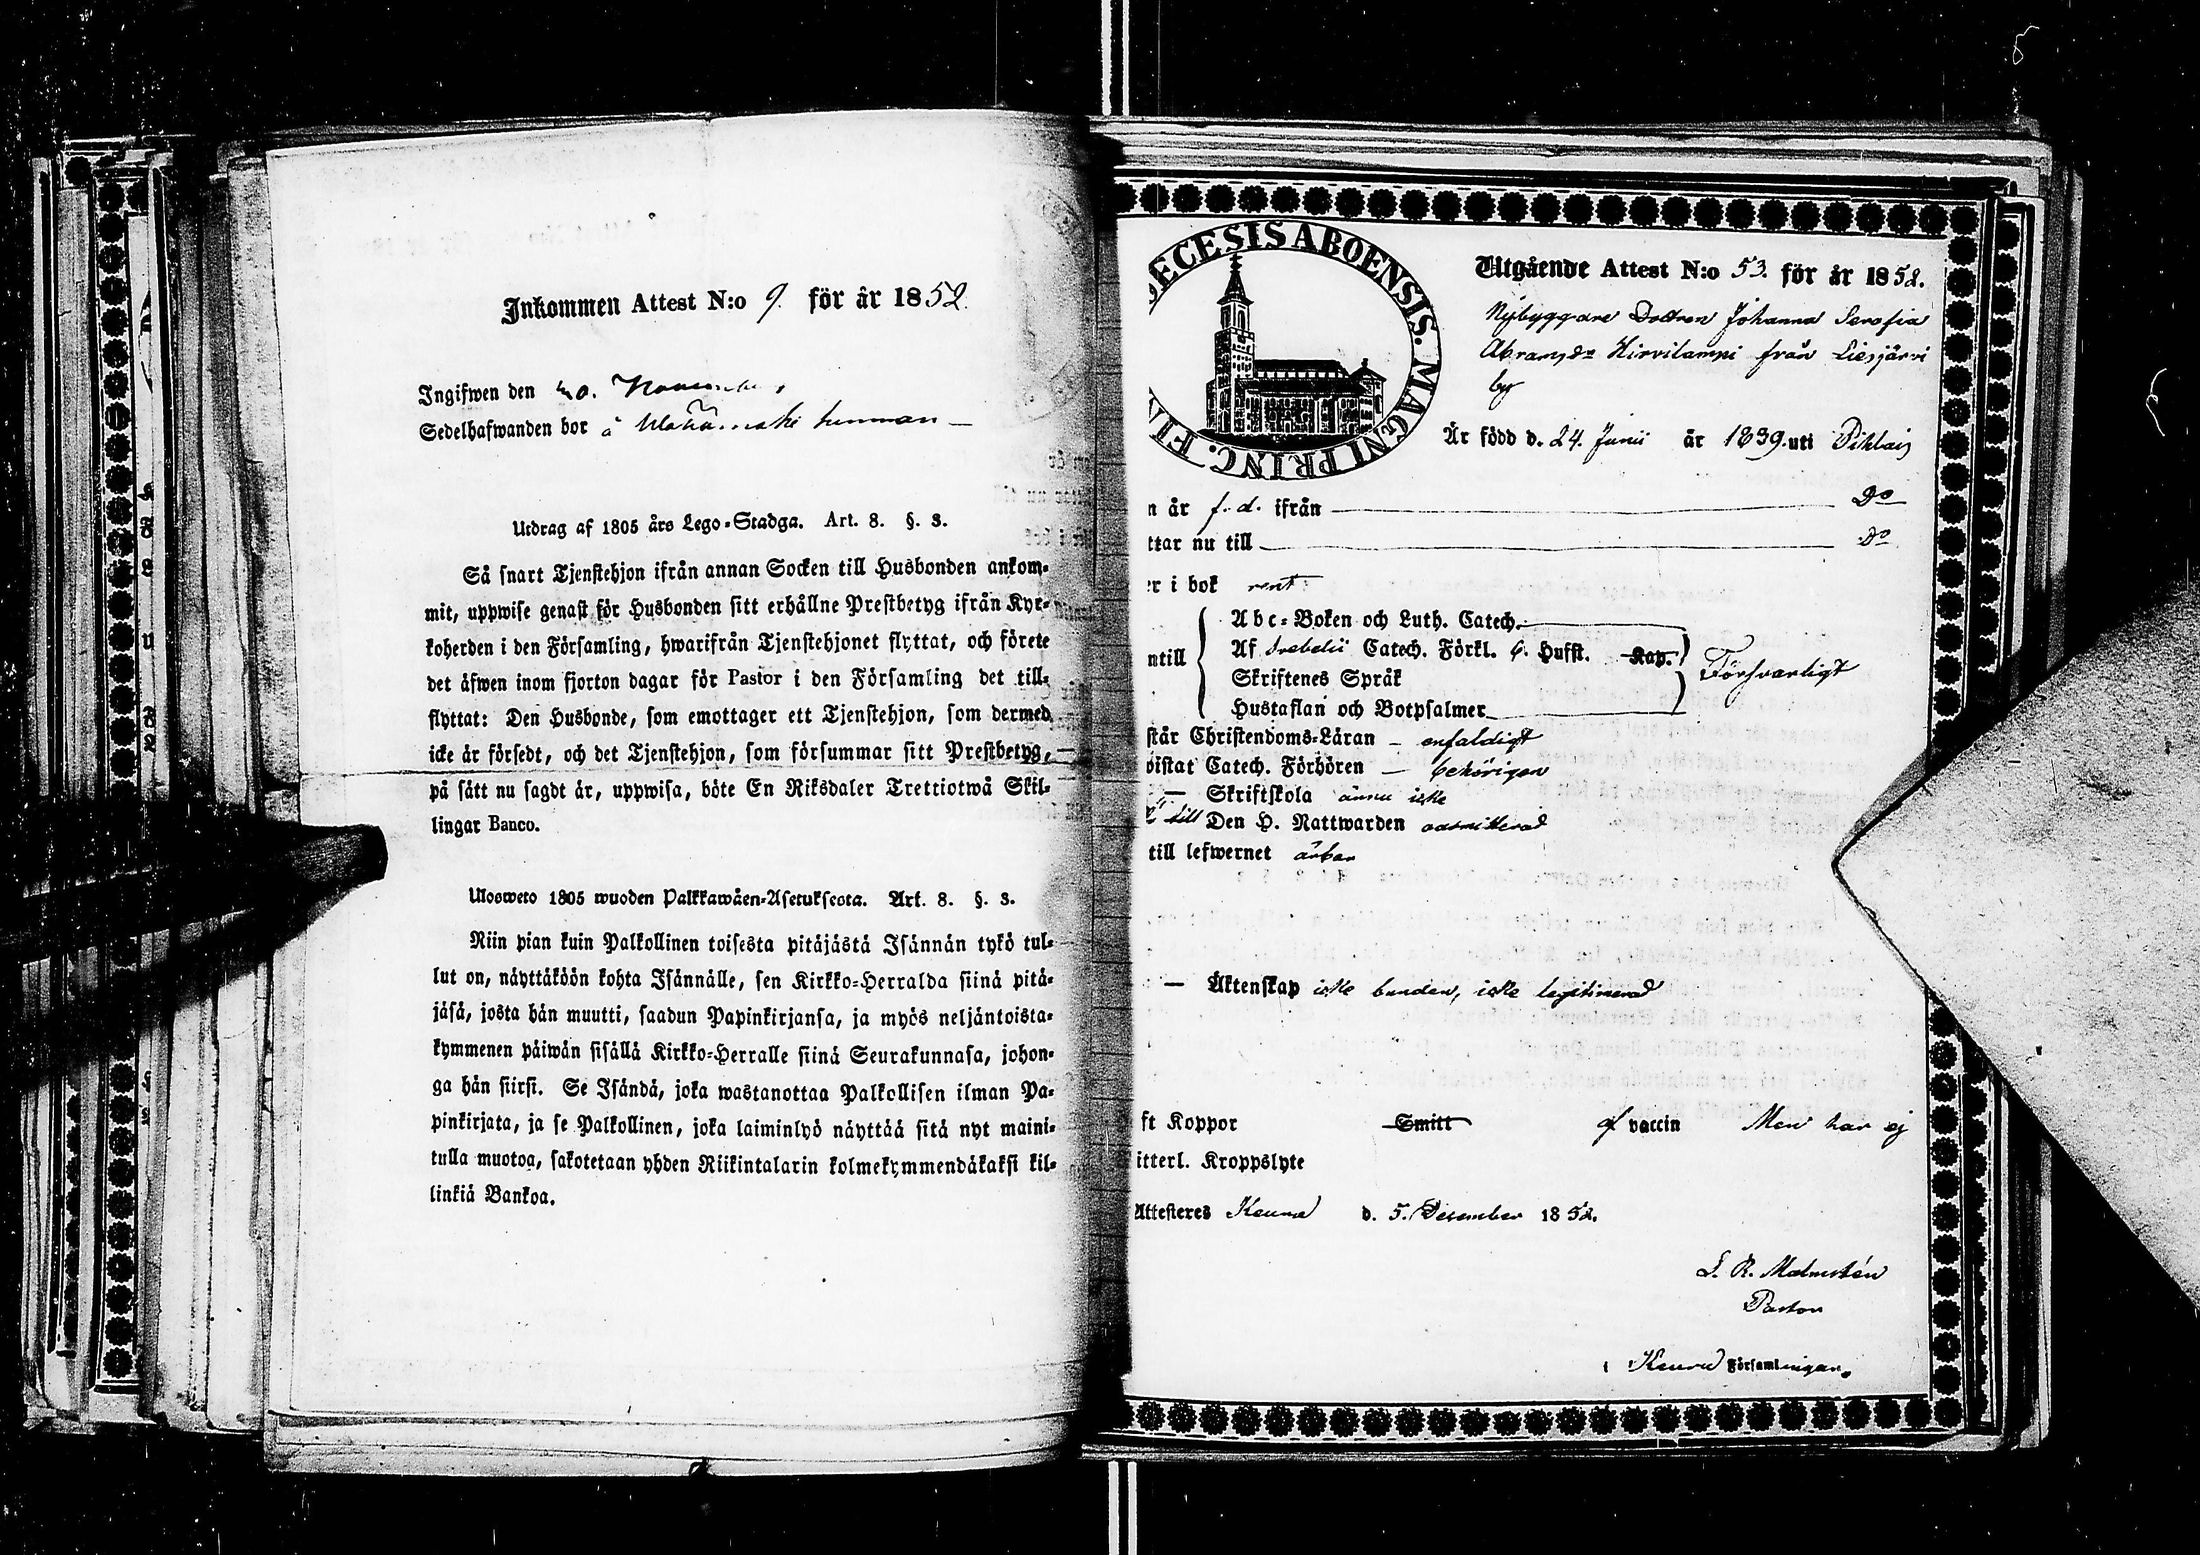 Inkommen Attest N:o 9. för år 1852.
Ingifwen den
Sedelhafwanden bor å
Utdrag af 1805 års Lego-Stadga. Art. 8. §. 3.
Så snart Tjenstehjon ifrån annan Socken till Husbonden ankom-
mit, uppwise genast för Husbonden sitt erhållne Prestbetyg ifrån Kyr-
koherden i den Församling, hwarifrån Tjenstehjonet flyttat, och förete
det äfwen inom fjorton dagar för Pastor i den Församling det till-
flyttat: Den Husbonde, som emottager ett Tjenstehjon, som dermed
icke är försedt, och det Tjenstehjon, som försummar sitt Prestbetyg,
på sätt nu sagdt är, uppwisa, böte En Riksdaler Trettiotwå Skil-
lingar Banco.
Uloswetо 1805 wuoden Palkkawäen-Asetuksesta. Art. 8. §. 3.
Niin pian kuin Palkollinen toisesta pitäjästä Isännän tykö tul-
lut on, näyttäköön kohta Isännälle, sen Kirkko-Herralda siinä pitä-
jäsä, josta hän muutti, saadun Papinkirjansa, ja myös neljäntoista-
kymmenen päiwän sisällä Kirkko-Herralle siinä Seurakunnasa, johon-
ga hän siirsi. Se Isändä, joka wastanottaa Palkollisen ilman Pa-
pinkirjata, ja se Palkollinen, joka laiminlyö näyttää sitä nyt maini-
tulla muotoa, sakotetaan yhden Riikintalarin kolmekymmendäkaksi kil-
linkiä Bankoa.
ECESIS ABOENSIS. MAGNI PRINC. FIN
Utgående Attest N:o 53. för år 1852.
Nybyggare Dottren Johanna Serafia
Abramsdr Hirvilampi från Liesjärvi
by
Är född d. 24. Junii år 1839. uti Pihlais
n år f. d. ifrån Do
ttar nu till Do
er i bok rent
ntill
Abc-Boken och Luth. Catech.
Af Svebelii Catech. Förkl. 6. Hufst. Kap.
Skriftenes Språk
Hustaflan och Botpsalmer
Försvarligt
står Christendoms-Läran – enfaldigt
wistat Catech. Förhören – behörigen
– Skriftskola ännu icke
till Den H. Nattwarden oadmitterad
till lefwernet ärbar
– Äktenskap icke bunden, icke legitimerad
ft Koppor Smitt af vaccin Men har ej
itterl. Kroppslyte
Attesteres Keuru d. 5. December 1852.
L. R. Malmstén
Pastor
i Keuru Församlingar.